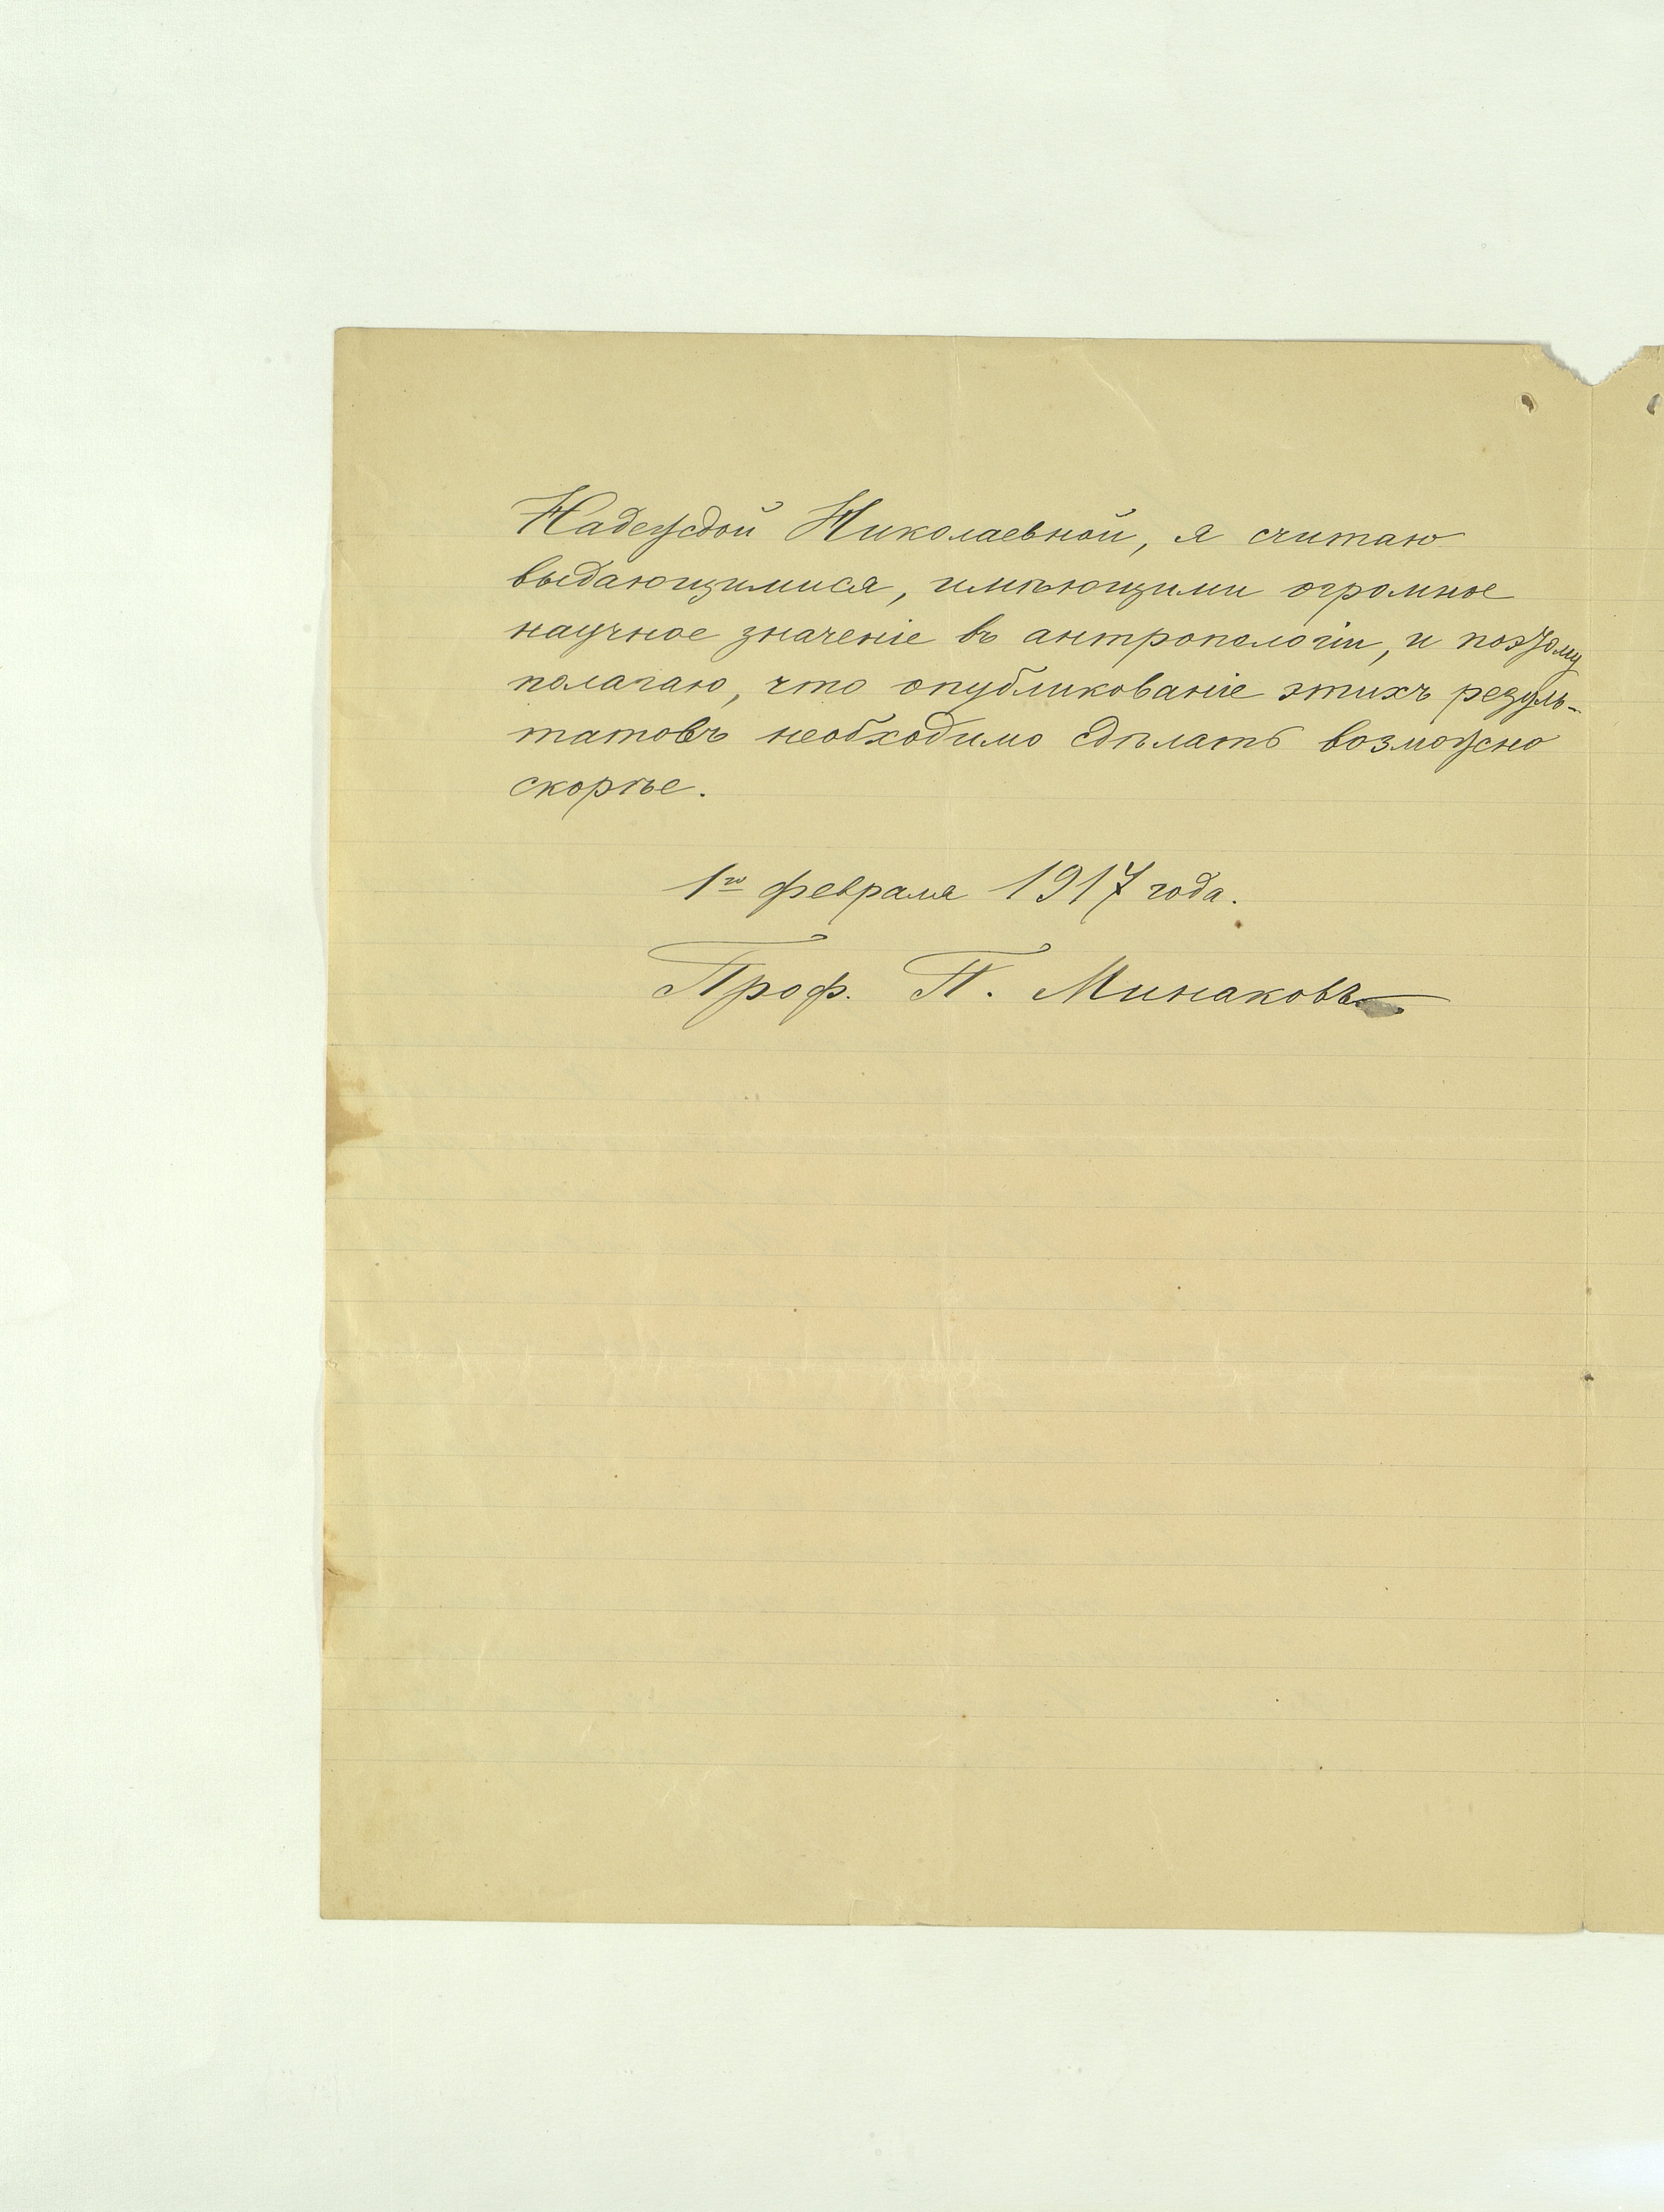 Надеждой Николаевной, я считаю
выдающимися, имѣющими огромное
научное значеніе въ антропологіи, и поэтому
полагаю, что опубликованіе этихъ резуль-
татовъ необходимо сдѣлать возможно
скорѣе.
1го февраля 1917 года.
Проф. П. Минаковъ